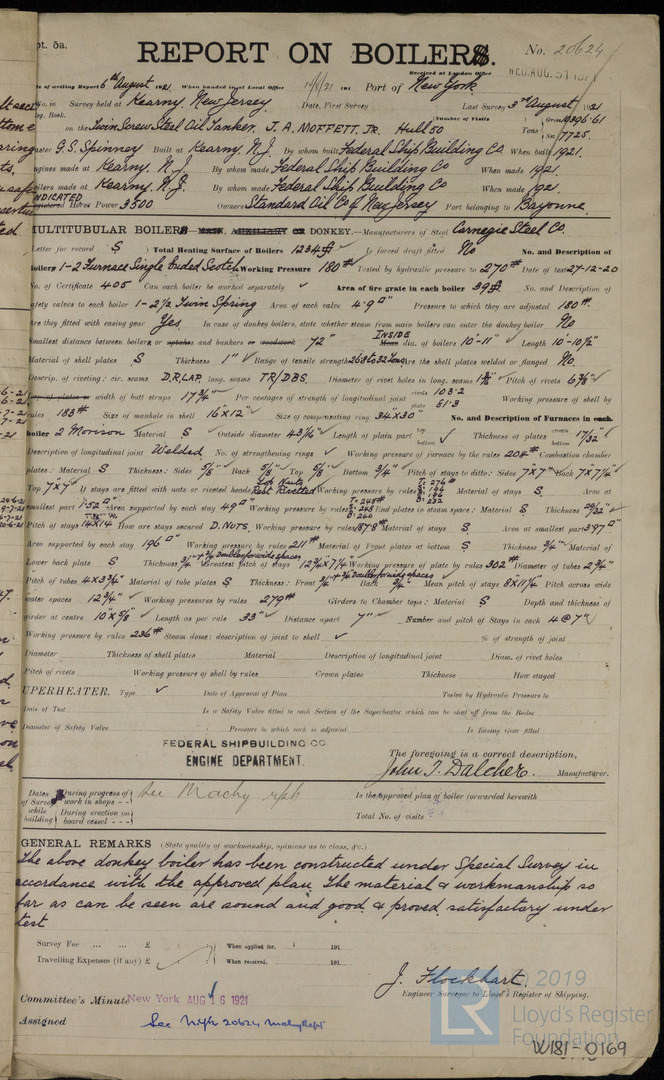 pt. 5a.
REPORT ON BOILERS.
No. 20624
Received at London Office
WED. AUG. 31 1921
Date of writing Report 6th August 1921. When handed in at Local Office 191 Port of New York
No. in Survey held at Kearny New Jersey Date, First Survey Last Survey 3rd August 1921
Reg. Book. Number of Visits
on the Twin Screw Steel Oil Tanker. J. A. MOFFETT. JR. Hull 50 Tons Gross 10396.61 Net 7725.
Master G. S. Spinney Built at Kearny. N. J. By whom built Federal Ship Building Co. When built 1921.
Engines made at Kearny. N. J. By whom made Federal Ship Building Co When made 1921.
Boilers made at Kearny. N. J. By whom made Federal Ship Building Co When made 1921.
INDICATED
Registered Horse Power 3500 Owners Standard Oil Co of New Jersey Port belonging to Bayonne.
MULTITUBULAR BOILERS MAIN, AUXILIARY OR DONKEY.—Manufacturers of Steel Carnegie Steel Co.
Letter for record S Total Heating Surface of Boilers 1234 Is forced draft fitted No No. and Description of
Boilers 1-2 Furnace Single Ended Scotch Working Pressure 180# Tested by hydraulic pressure to 270# Date of test 27-12-20
No. of Certificate 405 Can each boiler be worked separately ✓ Area of fire grate in each boiler 39 No. and Description of
safety valves to each boiler 1-2½ Twin Spring Area of each valve 4.9□" Pressure to which they are adjusted 180#.
Are they fitted with easing gear Yes. In case of donkey boilers, state whether steam from main boilers can enter the donkey boiler No
Smallest distance between boilers or uptakes and bunkers or woodwork 72" INSIDE Mean dia. of boilers 10'-11" ✓ Length 10'-10½"
Material of shell plates S Thickness 1" ✓ Range of tensile strength 26.8 to 32 Tons Are the shell plates welded or flanged No.
Descrip. of riveting: cir. seams D.R.LAP. long. seams TR/DBS. Diameter of rivet holes in long. seams Pitch of rivets 6⅞"
Lap of plates or width of butt straps 17¾" Per centages of strength of longitudinal joint rivets 103.2 plate Working pressure of shell by
rules 183# Size of manhole in shell 16x12" ✓ Size of compensating ring 34"x30" No. and Description of Furnaces in each
boiler 2 Morison Material S Outside diameter 43 Length of plain part top bottom ✓ Thickness of plates crown bottom 17/32" ✓
Description of longitudinal joint Welded No. of strengthening rings ✓ Working pressure of furnace by the rules 204# Combustion chamber
plates: Material S Thickness: Sides 5/8" Back 5/8" Top 5/8" Bottom 3/4" Pitch of stays to ditto: Sides 7"x7" Back 7"x7¼"
Top 7"x7" If stays are fitted with nuts or riveted heads Working pressure by rules Material of stays S Area at
smallest part 1.52□" Area supported by each stay 49□" Working pressure by rules End plates in steam space: Material S Thickness 29/32"
Pitch of stays 14x14 How are stays secured D. NUTS. Working pressure by rules Material of stays S Area at smallest part 3.97□"
Area supported by each stay 196□" Working pressure by rules 211# Material of Front plates at bottom S Thickness ¾" Material of
Lower back plate S Thickness Greatest pitch of stays 12¾"x7¼" Working pressure of plate by rules 302# Diameter of tubes 2¾"
Pitch of tubes 4x3¾" Material of tube plates S Thickness: Front Back ¾" Mean pitch of stays 8x11¼" Pitch across wide
water spaces 12¾" ✓ Working pressures by rules 279# Girders to Chamber tops: Material S Depth and thickness of
girder at centre 10x5/8" Length as per rule 33" ✓ Distance apart 7" Number and pitch of Stays in each 4@7"
Working pressure by rules 236# Steam dome: description of joint to shell ✓ % of strength of joint
Diameter Thickness of shell plates Material Description of longitudinal joint Diam. of rivet holes
Pitch of rivets Working pressure of shell by rules Crown plates Thickness How stayed
UPERHEATER. Type ✓ Date of Approval of Plan Tested by Hydraulic Pressure to
Date of Test Is a Safety Valve fitted to each Section of the Superheater which can be shut off from the Boiler
Diameter of Safety Valve Pressure to which each is adjusted Is Easing Gear fitted
FEDERAL SHIPBUILDING CO
ENGINE DEPARTMENT.
The foregoing is a correct description,
John T. Dalcher. Manufacturer.
Dates of Survey while building
During progress of work in shops - - See Machy rpt
During erection on board vessel - - -
Is the approved plan of boiler forwarded herewith
Total No. of visits
GENERAL REMARKS (State quality of workmanship, opinions as to class, &c.)
The above donkey boiler has been constructed under Special Survey in
accordance with the approved plan. The material & workmanship so
far as can be seen are sound and good & proved satisfactory under
test
Survey Fee ... ... £ When applied for, 191
Travelling Expenses (if any) £ When received, 191
J. Flockhart.
Engineer Surveyor to Lloyd's Register of Shipping.
Committee's Minute New York AUG 16 1921
Assigned See N.Y. 20624 Machy Rept
© 2019
LR
Lloyd's Register
Foundation
W181-0169